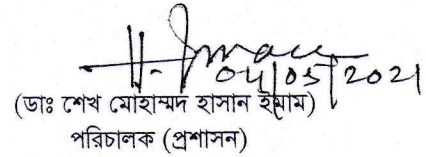 04/05/2021
(ডাঃ শেখ মোহাম্মদ হাসান ইমাম)
পরিচালক (প্রশাসন)